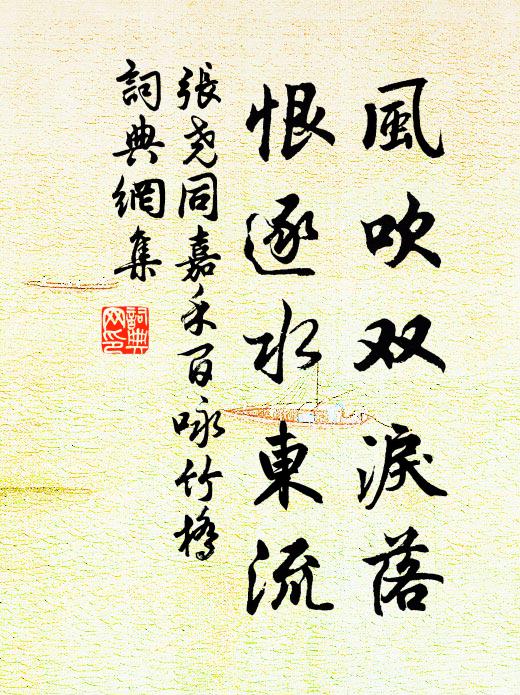 風吹双淚落
恨逐水東流
張堯同嘉禾百咏竹橋
詞典網集
詞典网印